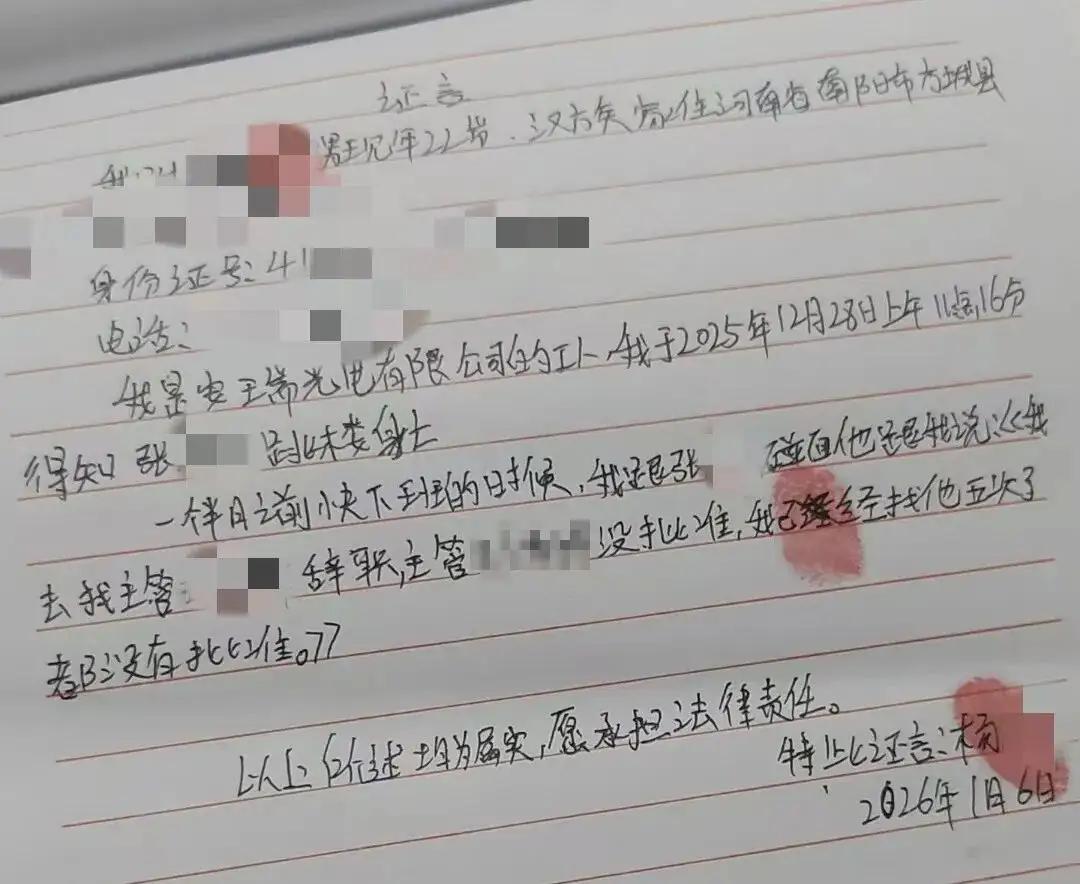 证言
我叫 男现年22岁.汉族家住河南省南阳市方城县
身份证号:41
电话:
我是安王瑞光电有限公司的工人,我于2025年12月28日上午11点16分
得知张 跳楼
一个半月之前小夫下班的时候,我跟张 碰面他跟我说:《我
去找主管 辞职,主管 没批准,我已经找他五次了
都没有批准。》
以上 述均为属实,愿承担法律责任。
特此证言:杨
2026年1月6日